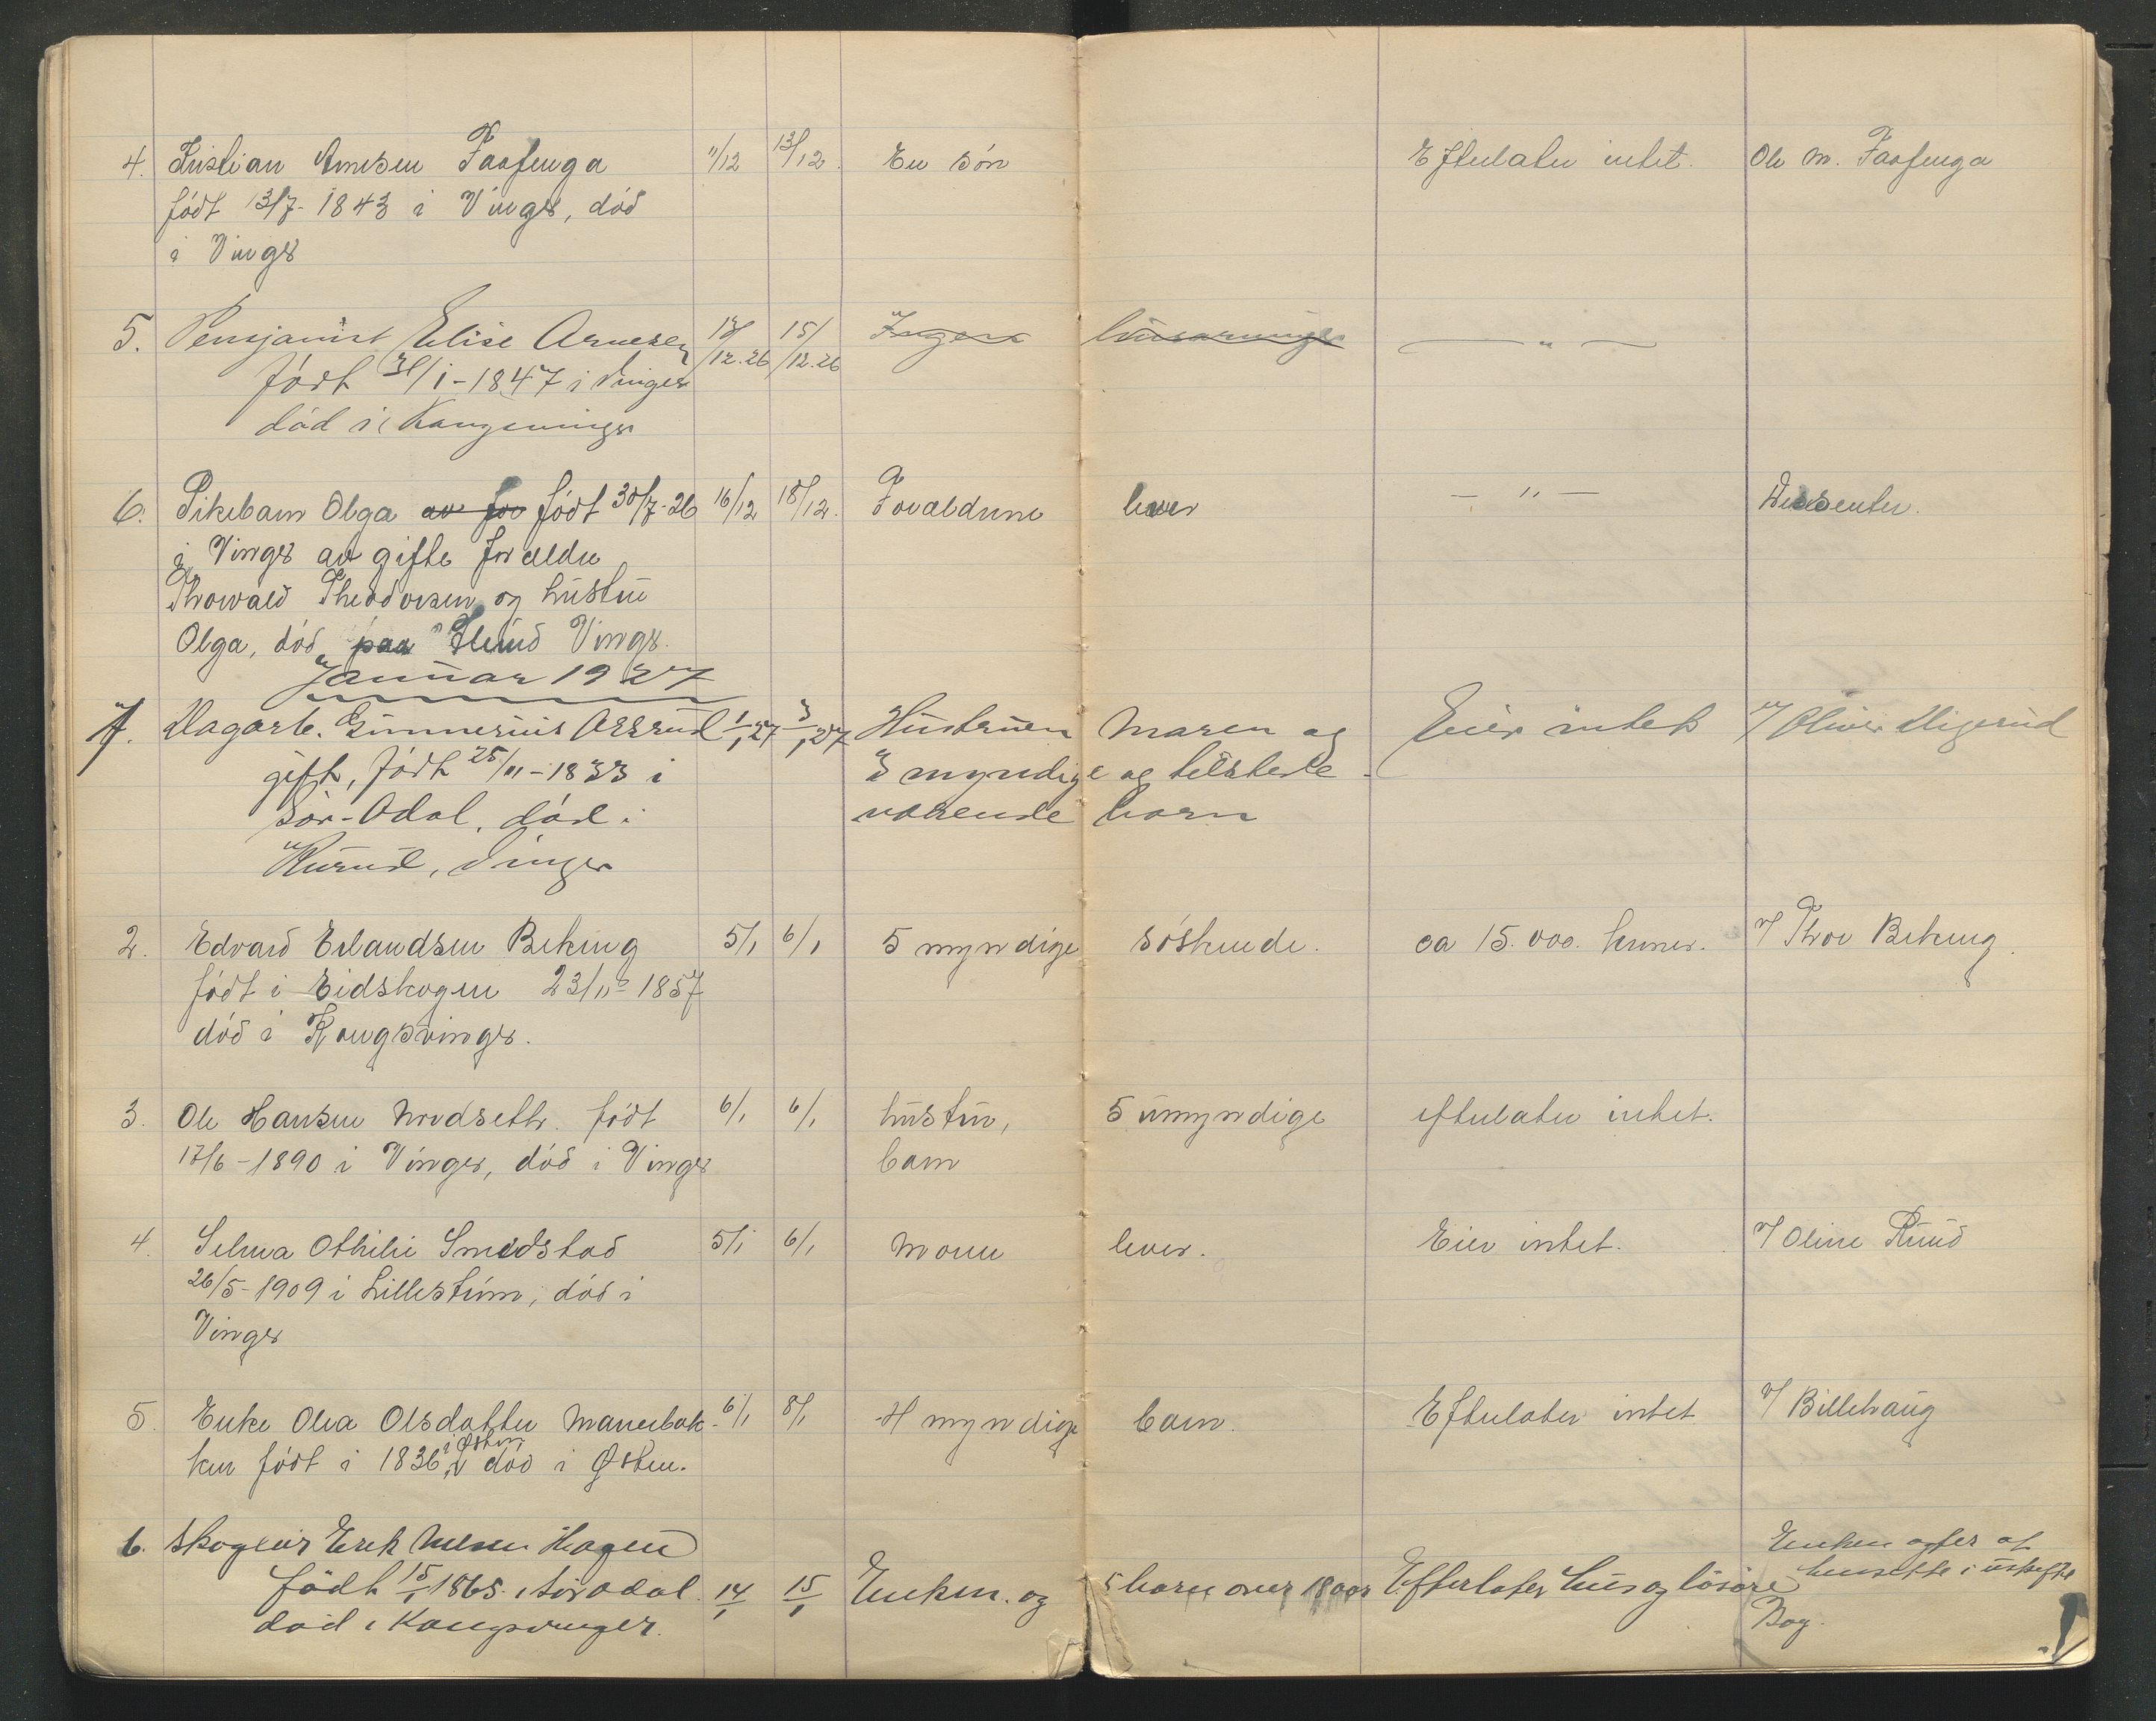 4. Kristian Arnesen Taafenga 11/12 13/12. En søn Efterlater intet. Ole M. Taafenga
født 13/7-1843 i Vinger, død
i Vinger
5. Pensjonist Elise Arnesen 13/12.26 15/12.26 Ingen livsarvinger — " —
født 31/1-1847 i Vinger
død i Kongsvinger
6. Pikebarn Olga av for født 30/7-26 16/12 18/12. Forældrene lever — " — Dissenter.
i Vinger av gifte forældre
Thorvald Theodorsen og hustru
Olga, død paa Vinger.
Januar 1927
1. Dagarb. Gunnerius Aasrud 1/1 27 3/1 27 Hustruen Maren og Eier intet v/ Oliver Digerud
gift, født 25/11-1833 i 3 myndige og tilstede-
Sør-Odal, død i værende barn
Rurud, Vinger
2. Edvard Erlandsen Beking 5/1 6/1 5 myndige søskende. ca 15.000. kroner. v/ Thov Beking.
født i Eidskogen 23/11-1857
død i Kongsvinger.
3. Ole Hansen Nordseth. født 6/1 6/1 hustru, 5 umyndige efterlater intet.
17/6-1890 i Vinger, død i Vinger barn
4. Selma Othilie Smedstad 5/1 6/1 Mann lever. Eier intet. v/ Oline Ruud
26/5-1909 i Lillestrøm, død i
Vinger
5. Enke Olea Olsdatter Manerbak- 6/1 8/1 4 myndige barn. Efterlater intet v/ Billehaug
ken født i 1836 i Østen død i Østen.
6. Skogeier Erik Hagen Enken sitter i uskifte
født 15/1 1865 i Sørodal 14/1 15/1 Enken og 5 barn over 18 aar Efterlater hus og løsøre
død i Kongsvinger. Bog.